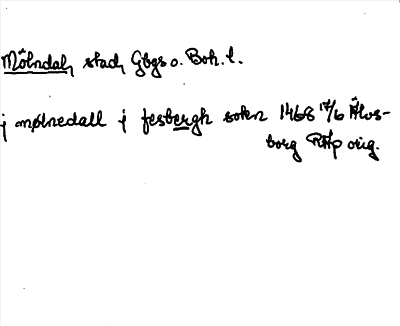 Mölndal, stad, Gbgs o. Boh. l.
j mølnedall j fesbergh sokn 1468 17/6 Älvs-
borg RAp orig.